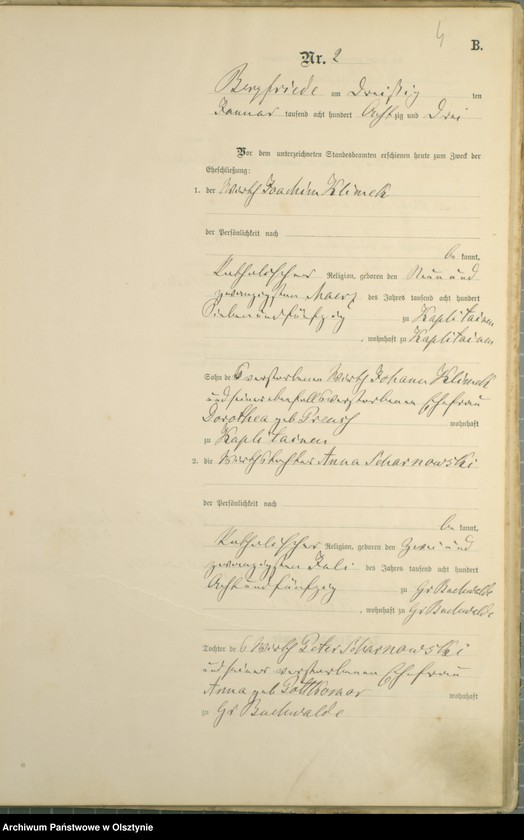 4
B.
Nr. 2
Bergfriede am Dreißig ten
Januar tausend acht hundert Achtzig und Drei
Vor dem unterzeichneten Standesbeamten erschienen heute zum Zweck der
Eheschließung:
1. der Wirth Joachim Klimek
der Persönlichkeit nach
be kannt,
Katholischer Religion, geboren den Neun und
zwanzigsten Maerz des Jahres tausend acht hundert
Sieben und fünfzig zu Kaplitainen
, wohnhaft zu Kaplitainen
Sohn des verstorbenen Wirth Johann Klimek
und seiner ebenfalls verstorbenen Ehefrau
Dorothea geb Preuß wohnhaft
zu Kaplitainen
2. die Wirthstochter Anna Scharnowski
der Persönlichkeit nach
be kannt,
Katholischer Religion, geboren den Zwei und
zwanzigsten Juli des Jahres tausend acht hundert
Acht und fünfzig zu Gr Buchwalde
, wohnhaft zu Gr Buchwalde
Tochter des Wirth Peter Scharnowski
und seiner verstorbenen Ehefrau
Anna geb wohnhaft
zu Gr Buchwalde
Archiwum Państwowe w Olsztynie